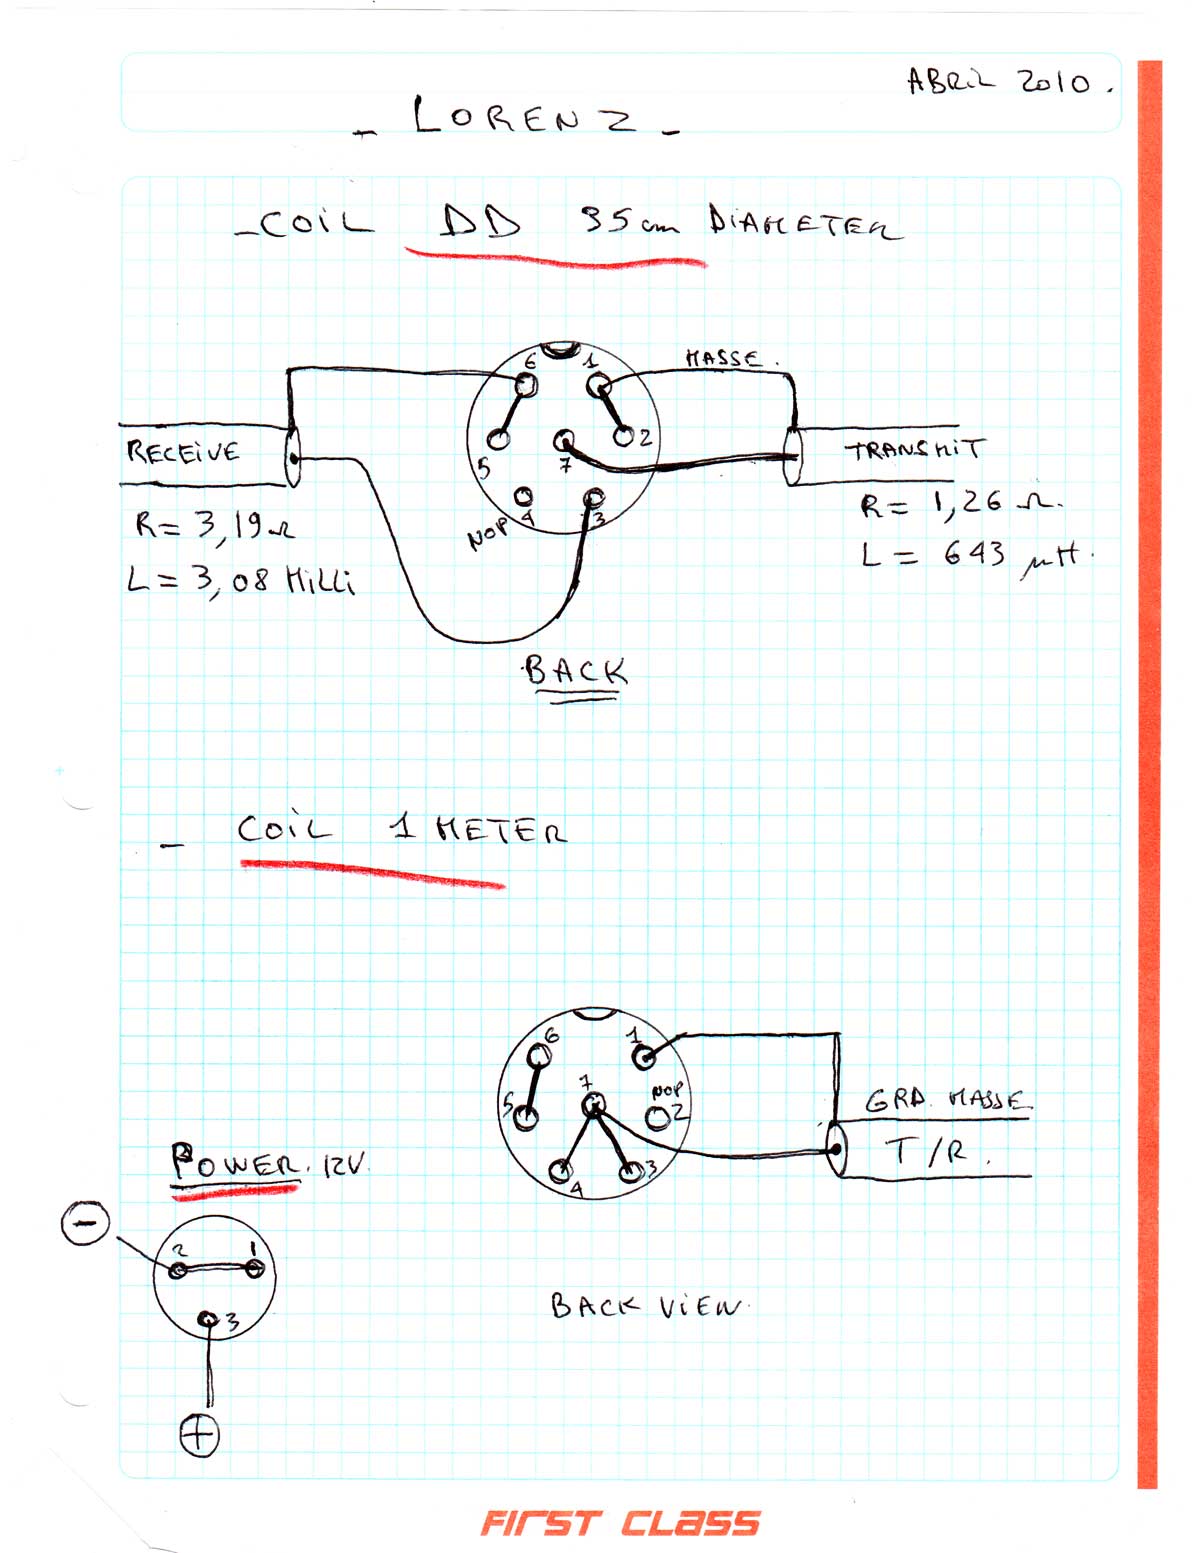 ABRIL 2010.
- LORENZ -
- COIL DD 35cm DIAMETER
6 1 MASSE.
RECEIVE 5 7 2 TRANSMIT
NOP 4 3
R = 3,19 Ω
L = 3,08 MILLI
R = 1,26 Ω.
L = 643 μH.
BACK
- COIL 1 METER
6 1
7 NOP
5 2
4 3
GRD. MASSE
T/R.
POWER. 12V.
-
2 1
3
+
BACK VIEW.
FIRST CLASS